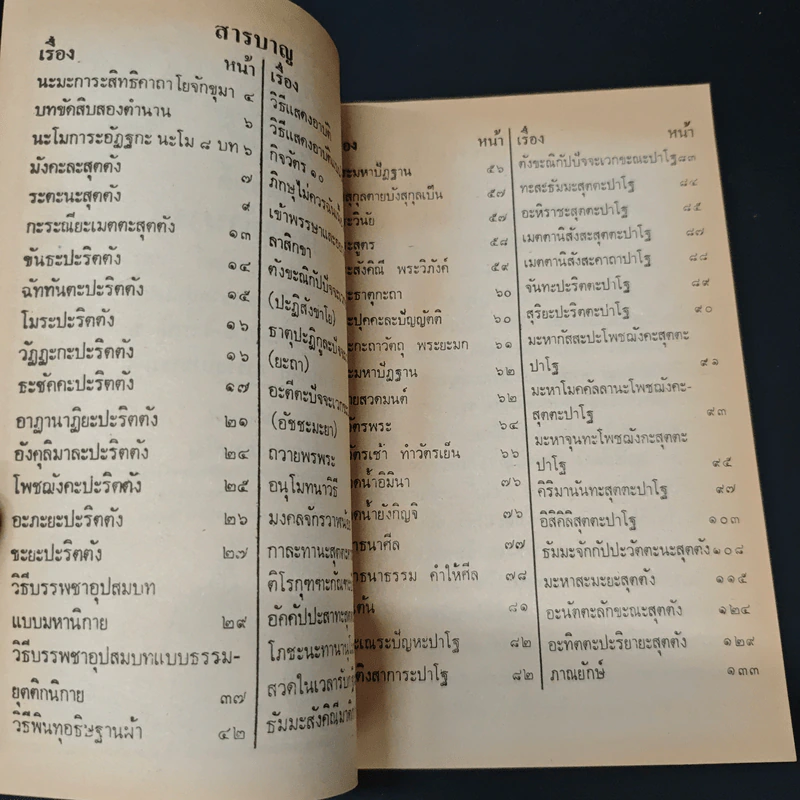 สารบาญ
เรื่อง หน้า
นะมะการะสิทธิคาถา โยจักขุมา ๔
บทขัดสิบสองตำนาน ๖
นะโมการะอัฏฐกะ นะโม ๘ บท ๖
มังคะละสุตตัง ๗
ระตะนะสุตตัง ๙
กะระณียะเมตตะสุตตัง ๑๓
ขันธะปะริตตัง ๑๔
ฉัททันตะปะริตตัง ๑๕
โมระปะริตตัง ๑๖
วัฏฏะกะปะริตตัง ๑๖
ธะชัคคะปะริตตัง ๑๗
อาฏานาฏิยะปะริตตัง ๒๑
อังคุลิมาละปะริตตัง ๒๔
โพชฌังคะปะริตตัง ๒๕
อะภะยะปะริตตัง ๒๖
ชะยะปะริตตัง ๒๗
วิธีบรรพชาอุปสมบท
แบบมหานิกาย ๒๙
วิธีบรรพชาอุปสมบทแบบธรรม-
ยุตติกนิกาย ๓๗
วิธีพินทุอธิษฐานผ้า ๔๒
เรื่อง
วิธีแสดงอาบัติ
วิธีแสดงอาบัติ
กิจวัตร ๑๐
ภิกษุไม่ควร
เข้าพรรษา
ลาสิกขา
ตังขะณิกปัจจะเ
(ปะฏิสังขาโย)
ธาตุปะฏิกูละปัจจะ
(ยะถา)
อะตีตะปัจจะเวก
(อัชชะมะยา)
ถวายพรพระ
อนุโมทนาวิธี
มงคลจักรวาฬ
กาละทานะสุตตะ
ติโรกุฑฑะกัณฑะ
อัคคัปปะสาทะสุต
โภชะนะทานา
สวดในเวลารับ
ธัมมะสังคิณีมาติ
อง หน้า
ะมหาปัฏฐาน ๕๖
สุกุลตายบังสุกุลเป็น ๕๗
ะวินัย ๕๗
ะสูตร ๕๘
ะสังคิณี พระวิภังค์ ๕๙
ะธาตุกะถา ๖๐
ะปุคคะละปัญญัตติ ๖๐
ะกะถาวัตถุ พระยะมก ๖๑
ะมหาปัฏฐาน ๖๒
ายสวดมนต์ ๖๒
ัตรพระ ๖๔
ัตรเช้า ทำวัตรเย็น ๖๖
ดน้ำอิมินา ๗๖
ดน้ำยังกิญจิ ๗๖
าธนาศีล ๗๗
าธนาธรรม คำให้ศีล ๗๘
ต้น ๘๑
ะเณระปัญหะปาโฐ ๘๒
ติงสาการะปาโฐ ๘๒
เรื่อง หน้า
ตังขะณิกปัจจะเวกขะณะปาโฐ ๘๓
ทะสะธัมมะสุตตะปาโฐ ๘๔
อะหิราชะสุตตะปาโฐ ๘๕
เมตตานิสังสะสุตตะปาโฐ ๘๗
เมตตานิสังสะคาถาปาโฐ ๘๘
จันทะปะริตตะปาโฐ ๘๙
สุริยะปะริตตะปาโฐ ๙๐
มะหากัสสะปะโพชฌังคะสุตตะ
ปาโฐ ๙๑
มะหาโมคคัลลานะโพชฌังคะ-
สุตตะปาโฐ ๙๓
มะหาจุนทะโพชฌังคะสุตตะ
ปาโฐ ๙๕
คิริมานันทะสุตตะปาโฐ ๙๗
อิสิคิลิสุตตะปาโฐ ๑๐๓
ธัมมะจักกัปปะวัตตะนะสุตตัง ๑๐๘
มะหาสะมะยะสุตตัง ๑๑๕
อะนัตตะลักขะณะสุตตัง ๑๒๔
อะทิตตะปะริยายะสุตตัง ๑๒๙
ภาณยักษ์ ๑๓๓